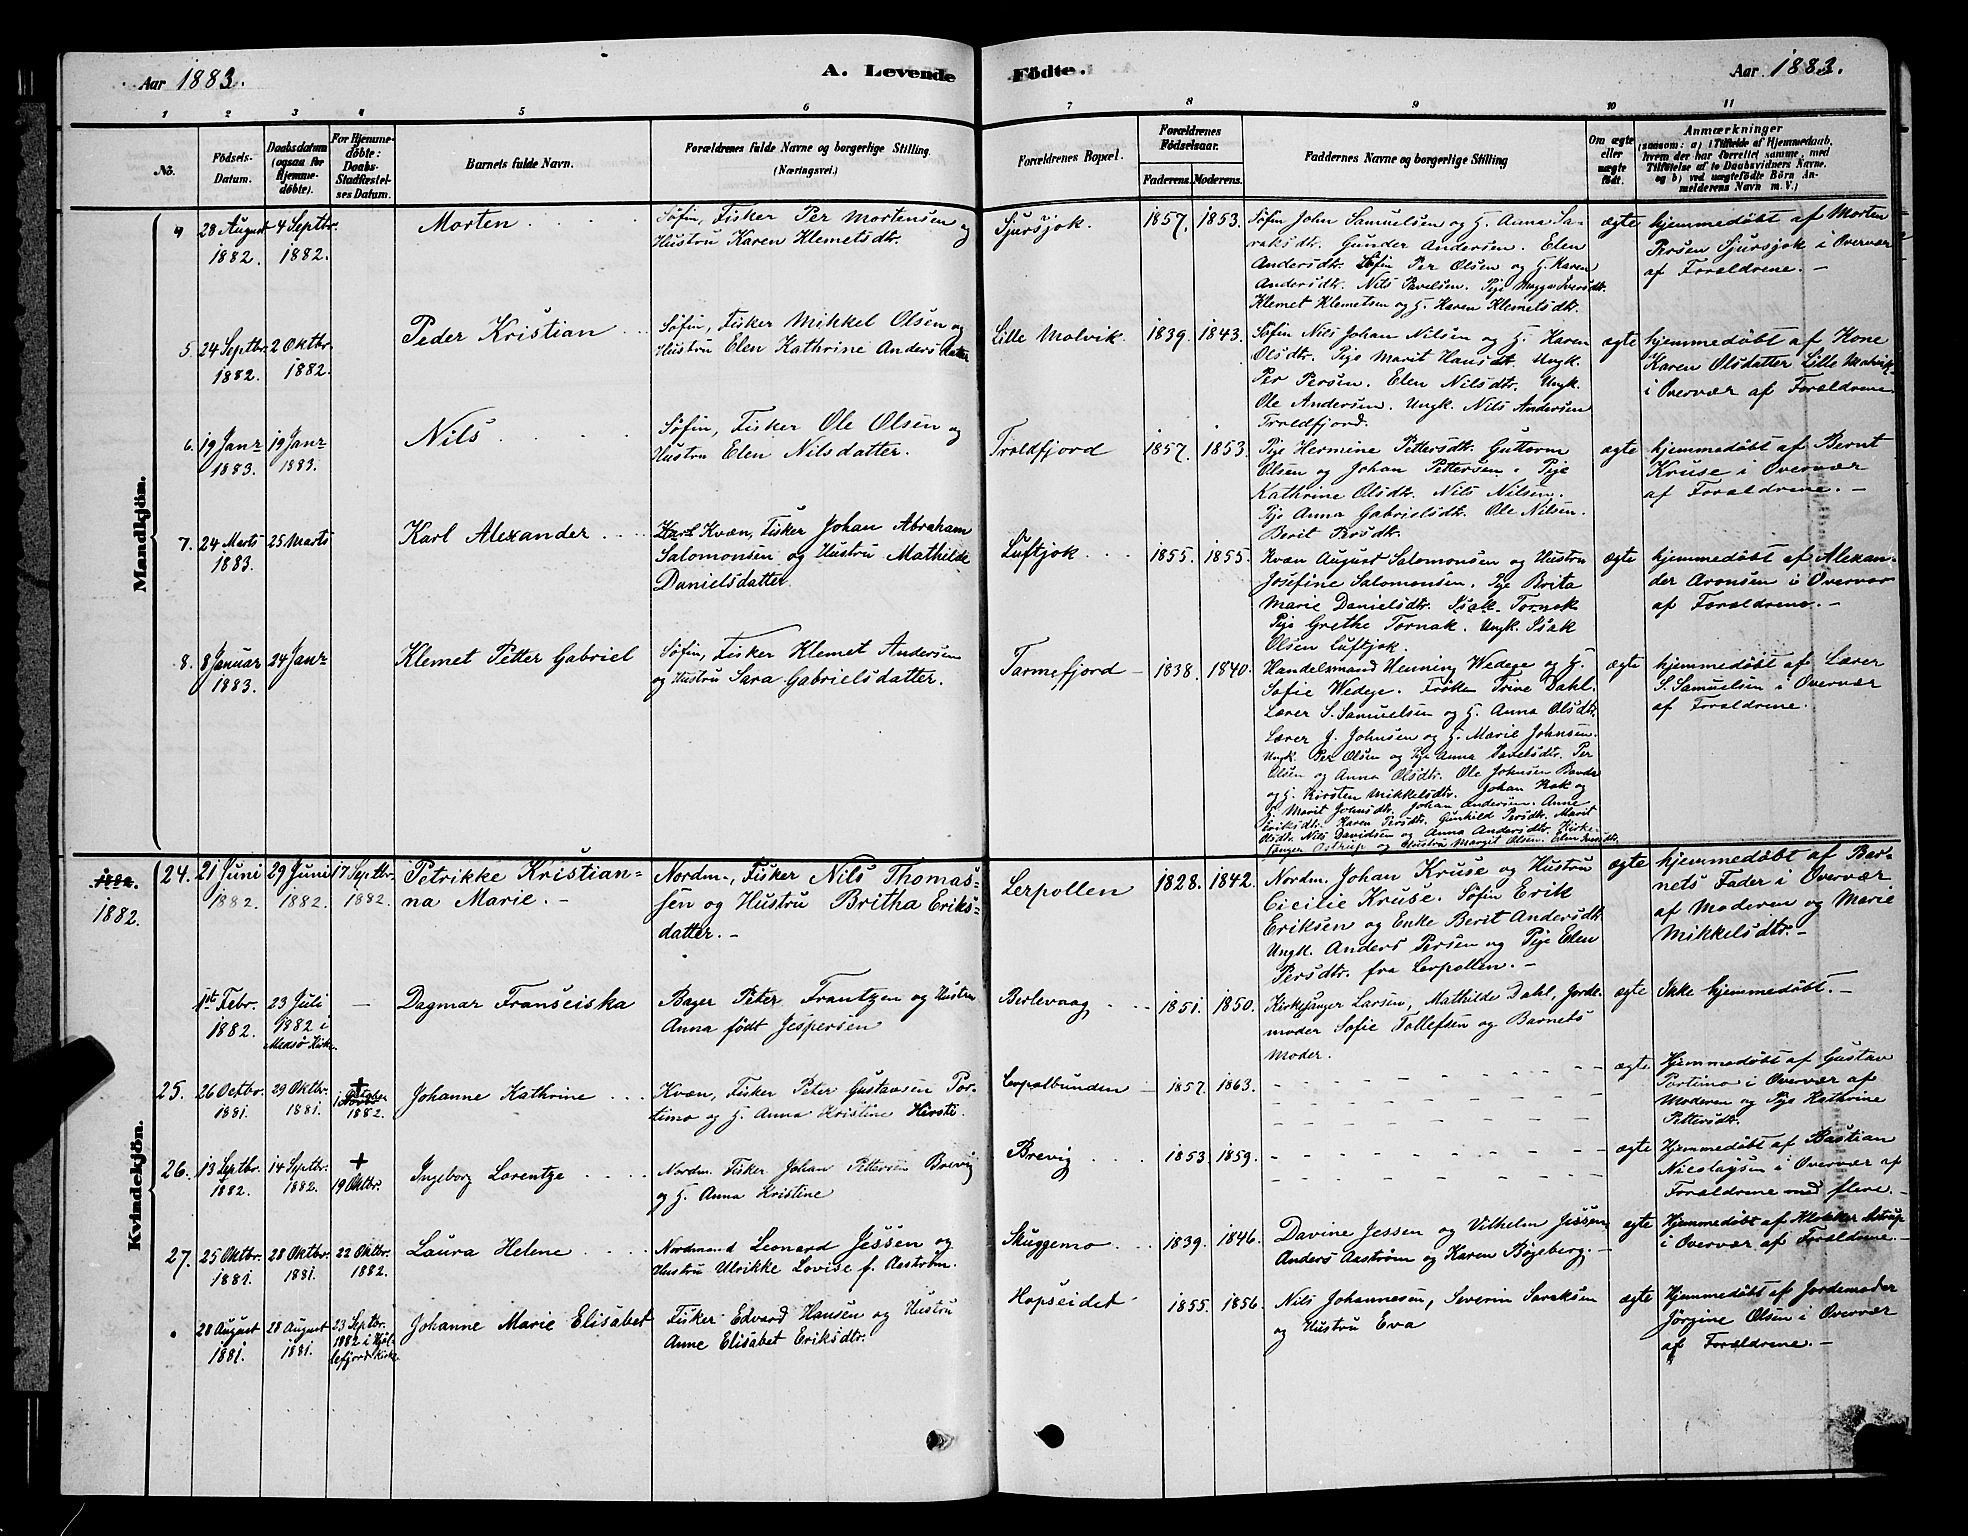 Aar 1883. A. Levende Fødte. Aar 1883.
1 2 3 4 5 6 7 8 9 10 11
No.
Fødsels-Datum.
Daabsdatum (ogsaa for Hjemmedøbte).
For Hjemmedøbte: Daabs-Stadfæstelses Datum.
Barnets fulde Navn.
Forældrenes fulde Navne og borgerlige Stilling.
(Næringsvei.)
Forældrenes Bopæl.
Forældrenes Fødselsaar.
Faderens. Moderens.
Faddernes Navne og borgerlige Stilling
Om ægte eller uægte født.
Anmærkninger
(saasom: a) i Tilfælde af Hjemmedaab, hvem der har forrettet samme, med Tilføielse af to Daabsvidners Navne, og b) ved uægtefødte Børn Anmelderens Navn m. V.)
Mandkjön.
4 28 August 1882. 4 Septbr. 1882.
Morten
Søfin, Fisker Per Mortensen og
Hustru Karen Klemetsdtr.
Sjursjok. 1857. 1853.
Søfin John Samuelsen og H. Anna Sa-
raksdtr. Gunder Andersen. Elen
Andersdtr. Søfin Per Olsen og H. Karen
Andersdtr. Nils Pavelsen. Pige
Klemet Klemetsen og H. Karen Klemetsdtr.
ægte
hjemmedøbt af Morten
Persen Sjursjok i Overvær
af Forældrene. —
5. 24 Septbr. 1882. 2 Oktbr. 1882.
Peder Kristian
Søfin, Fisker Mikkel Olsen og
Hustru Elen Kathrine Andersdatter
Lille Molvik. 1839. 1843.
Søfin Nils Johan Nilsen og H. Karen
Olsdtr. Pige Marit Hansdtr. Ungk.
Per Persen. Elen Nilsdtr. Ungk.
Ole Andersen. Ungk. Nils Andersen
Troldfjord.
ægte
hjemmedøbt af Kone
Karen Olsdatter Lille Molvik
i Overvær af Forældrene
6. 19 Janr 1883. 19 Janr 1883.
Nils
Søfin, Fisker Ole Olsen og
Hustru Elen Nilsdatter.
Troldfjord 1857. 1853.
Pige Hermine Pettersdtr. Guttorm
Olsen og Johan Pettersen. Pige
Kathrine Olsdtr. Nils Nilsen.
Pige Anna Gabrielsdtr. Ole Nilsen.
Berit Persdtr.
ægte
hjemmedøbt af Bernt
Kruse i Overvær
af Forældrene. —
7. 24 Marts 1883. 25 Marts
Karl Alexander
Kvæn, Fisker Johan Abraham
Salomonsen og Hustru Mathilde
Danielsdatter
Luftjok 1855. 1855.
Kvæn August Salomonsen og Hustru
Josefine Salomonsen. Pige Brita
Marie Danielsdtr. Isak Tornak
Pige Grethe Tornak. Ungk. Isak
Olsen Luftjok.
ægte
hjemmedøbt af Alexan-
der Aronsen i Overvær
af Forældrene. —
8. 8 Januar 1883. 24 Janr
Klemet Petter Gabriel
Søfin, Fisker Klemet Andersen
og Hustru Sara Gabrielsdatter.
Tarmefjord — 1838. 1840.
Handelsmand Henning Wedege og H.
Sofie Wedege. Frøken Trine Dahl.
Lærer S. Samuelsen og H. Anna Olsdtr.
Lærer J. Johnsen og H. Marie Johnsen.
Ungk. Per Olsen og Pige Anna Pavelsdtr. Per
Olsen og Anna Olsdtr. Ole Johnsen
og H. Kirsten Mikkelsdtr. Johan og
H. Marit Johnsdtr. Johan Andersen. Anne
Eriksdtr. Karen Persdtr. Gunhild Persdtr. Marit
Olsdtr. Nils Davidsen og Anna Andersdtr. Kirke-
sanger Astrup og Hustru Margit Olsen.
ægte
hjemmedøbt af Lærer
S. Samuelsen i Overvær
af Forældrene.
Kvindekjön.
1882.
24. 21 Juni 1882. 29 Juni 1882. 17 Septbr. 1882.
Petrikke Kristian-
na Marie. —
Nordm., Fisker Nils Thomas-
sen og Hustru Britha Eriks-
datter. —
Lerpollen 1828. 1842.
Nordm. Johan Kruse og Hustru
Cicilie Kruse. Søfin Erik
Eriksen og Enke Berit Andersdtr.
Ungk. Anders Persen og Pige Elen
Persdtr. fra Lerpollen. —
ægte
hjemmedøbt af Bar-
nets Fader i Overvær
af Moderen og Marie
Mikkelsdtr. —
1ste Febr. 1882. 23 Juli 1882 i Medsø Kirke. —
Dagmar Franseiska
Bager Peter Frantzen og Hustru
Anna født Jespersen
Berlevaag 1851. 1850.
Kirkesanger Larsen, Mathilde Dahl, Jorde-
moder Sofie Tollefsen og Barnets
Moder.
ægte
Ikke hjemmedøbt. —
25. 26 Octbr. 1881. 29 Oktbr. 1881. + 1882.
Johanne Kathrine
Kvæn, Fisker Peter Gustavsen Por-
timo og H. Anna Kristine Hirsti.
Lerpolbunden 1857. 1863.
ægte
Hjemmedøbt af Gustav
Portimo i Overvær af
Moderen og Pige Kathrine
Pettersdtr.
26. 13 Septbr. 1882. 14 Septbr. 1882. + 19 Oktbr.
Ingeborg Lorentze
Nordm. Fisker Johan Pettersen Brevig
og H. Anna Kristine
Brevig 1853 1859.
ægte
Hjemmedøbt af Bastian
Nicolaysen i Overvær af
Forældrene med flere. —
27. 25 Oktbr. 1881. 28 Oktbr. 1881. 22 Oktbr. 1882.
Laura Helene
Nordmand Leonard Jessen og
Hustru Ulrikke Lovise f. Aastrøm.
Skuggemo 1839. 1846.
Davine Jessen og Vilhelm Jessen
Anders Aastrøm og Karen Bøgeberg. —
ægte
Hjemmedøbt af Klokker Astrup
i Overvær af Forældrene. —
28 August 1881. 28 August 1881. 23 Septbr. 1882 i Kjøl-
lefjord Kirke
Johanne Marie Elisabet
Fisker Edvard Hansen og Hustru
Anne Elisabet Eriksdtr.
Hopseidet 1855. 1856.
Nils Johannesen, Severin Saraksen
og Hustru Eva
ægte
Hjemmedøbt af Jordemoder
Jørgine Olsen i Overvær
af Forældrene. —